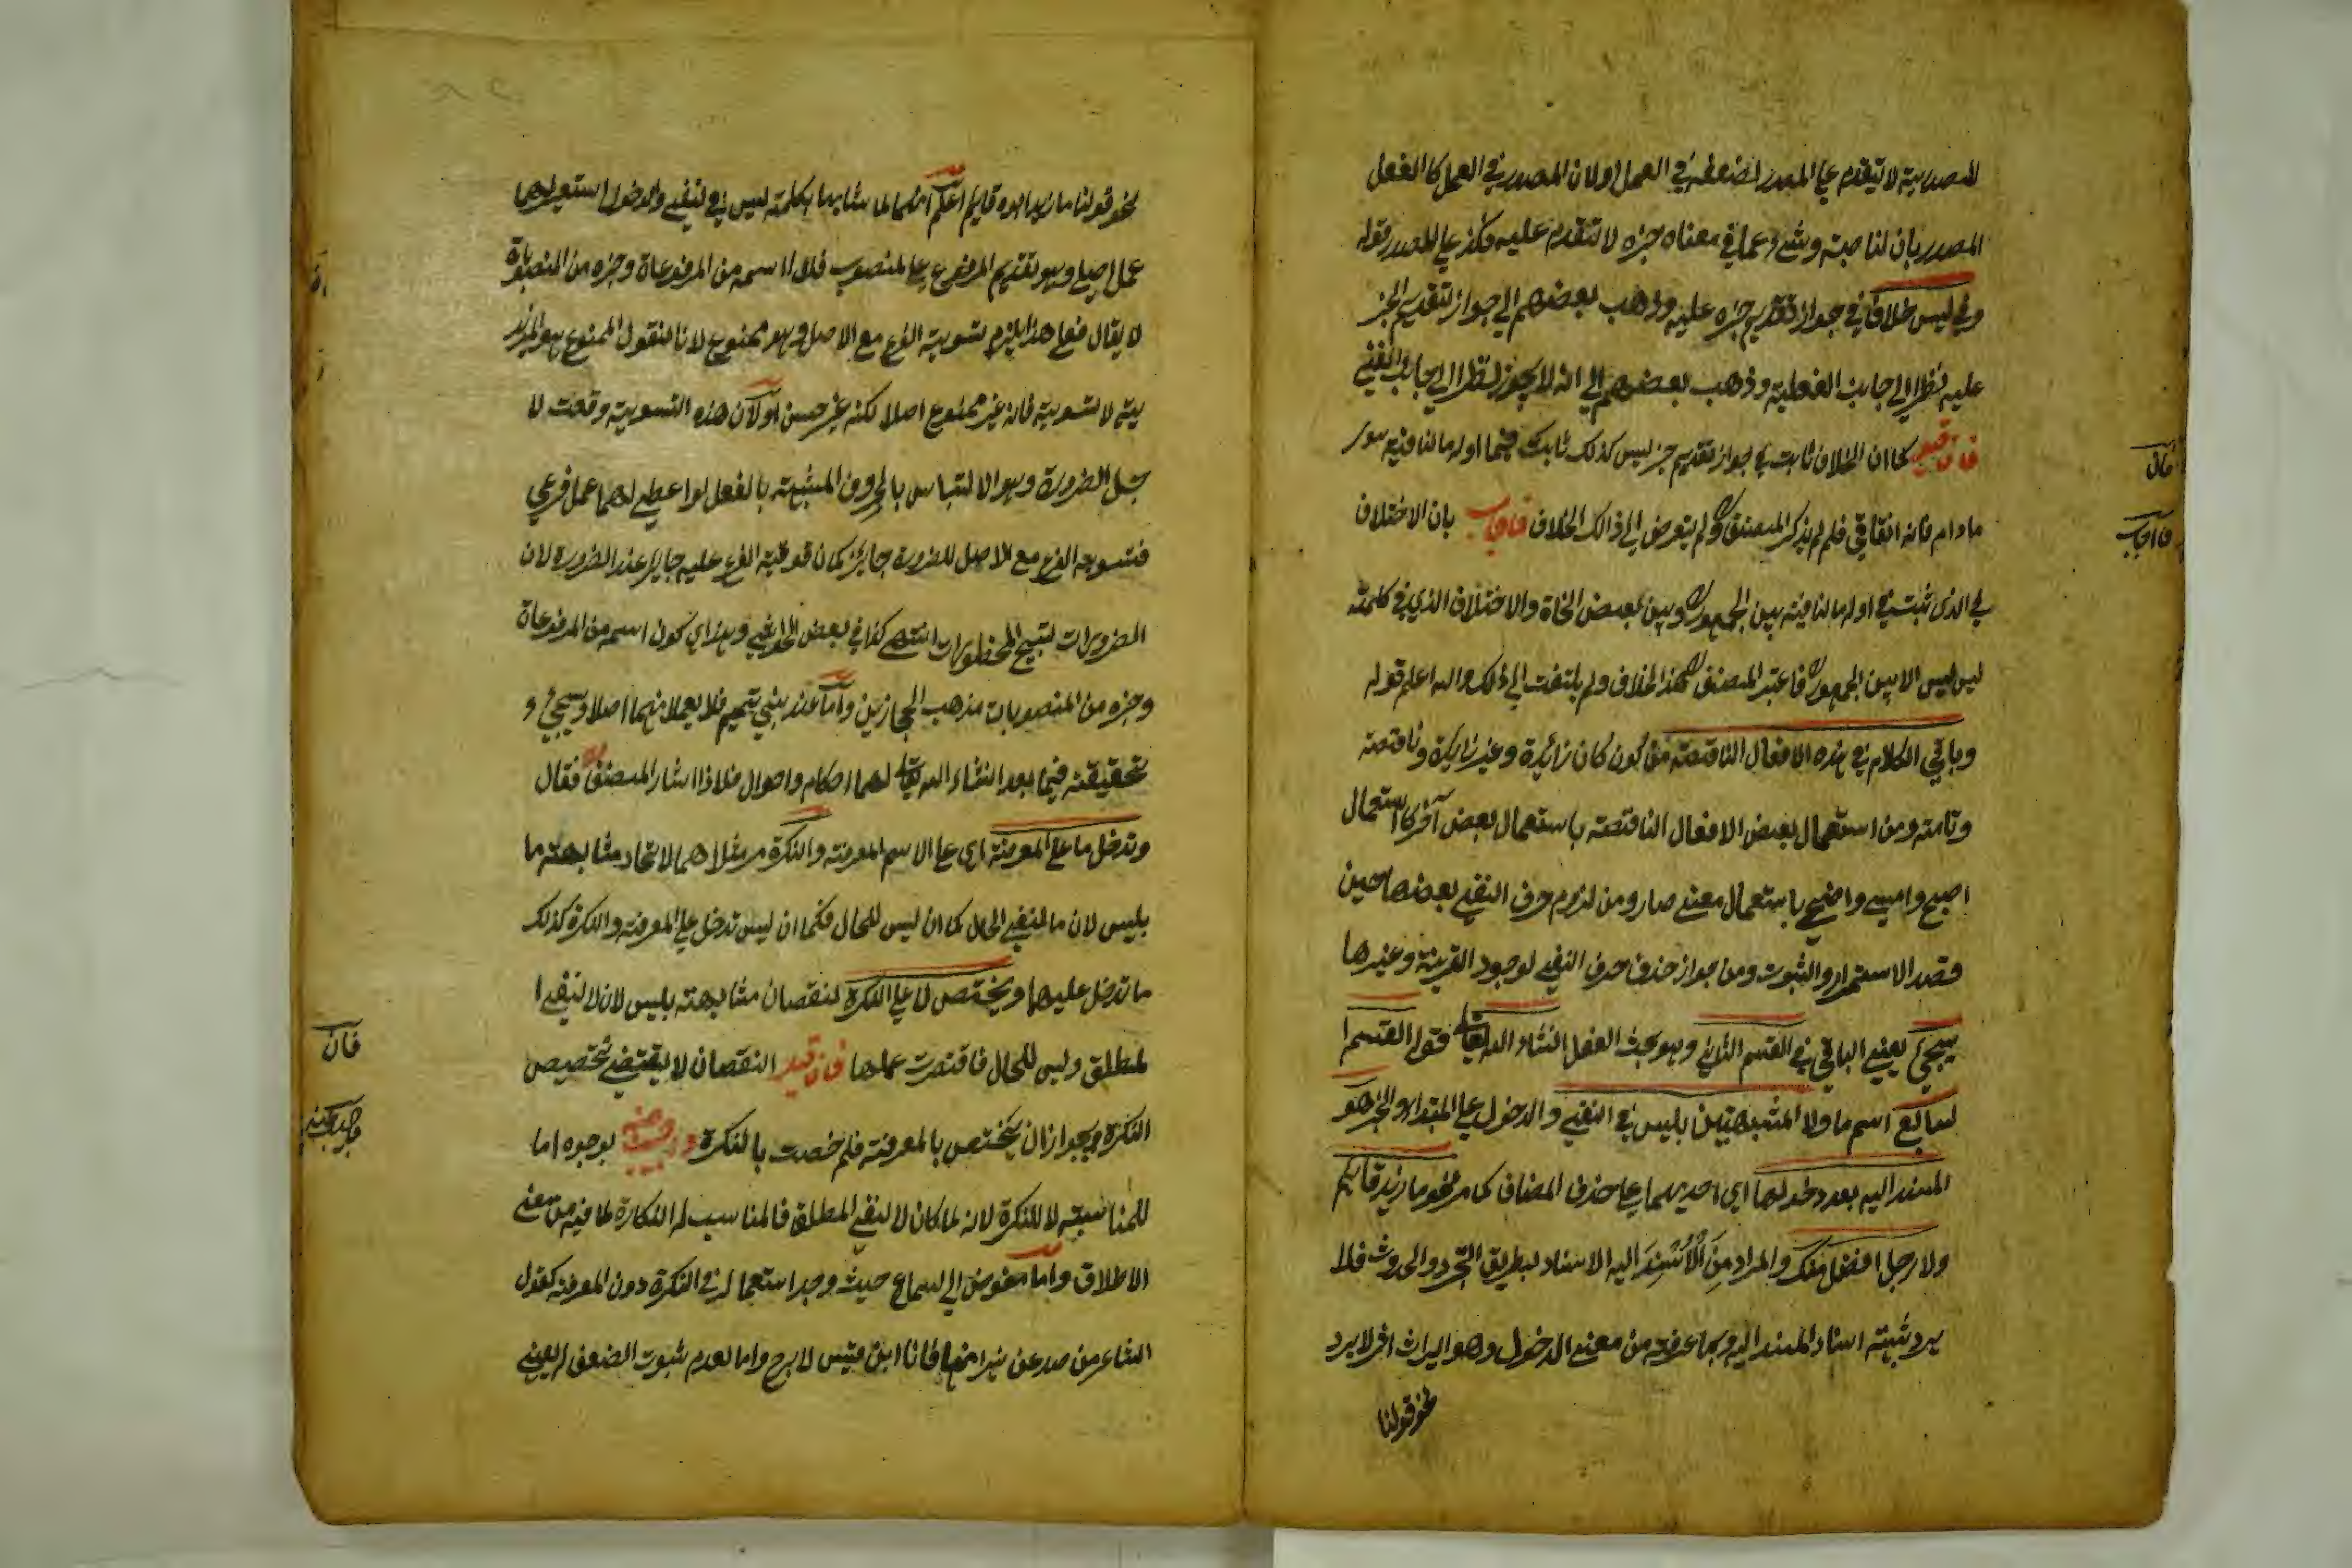 المصدرية لا تتقدم على المصدر لضعفه في العمل اولان المصدر في العمل كالفعل
المصدر بان الناصبة وشئ مما في معناه خبره لا تتقدم عليه فكذ على المصدر قوله
وفي ليس خلاف في جواز تقديم خبره عليه وذهب بعضهم الى جواز تقديم الخبر
عليه نظرا الى جانب الفعلية وذهب بعضهم الى انه لا يجوز نظرا الى جانب النفي
فان قيل كما ان الخلاف ثابت في جواز تقديم خبر ليس كذلك ثابت فيما اوله ما النافية سوى
مادام فانه اتفاقي فلم لم يذكر المصنف ولم يتعرض الى ذالك الخلاف فاجاب بان الاختلاف
في الذي ثبت في اوله ما النافية بين الجمهور وبين بعض النحاة والاختلاف الذي في كلمة
ليس ليس الا بين الجمهور فاعتبر المصنف هذا الخلاف ولم يلتفت الى ذلك والله اعلم قوله
وباقي الكلام في هذه الافعال الناقصة من كون كان زائدة وغير زائدة وناقصة
وتامة ومن استعمال بعض الافعال الناقصة باستعمال بعض آخر كاستعمال
اصبح وامسى واضحى باستعمال معنى صار ومن لزوم حرف النفي بعضها حين
قصد الاستمرار والثبوت ومن جواز حذف حرف النفي لوجود القرينة وغيرها
سيجئ يعني الباقي في القسم الثاني وهو بحث الفعل انشاء الله تعالى قوله القسم ا
لسابع اسم ما ولا المشبهتين بليس في النفي والدخول على المبتدا والخبر هو
المسند اليه بعد دخولهما اي احديهما على حذف المضاف كما مر نحو ما زيد قائم
ولا رجل افضل منك والمراد من الْاُسْنِدَ اليه الاسناد بطريق التجرد والحدوث فلا
يرد شبهة اسناد المسند اليه وبما عرفت من معنى الدخول وهو ايراث اثر لا يرد
نحو قولنا
فان
فاجاب
نحو قولنا ما زيد ابوه قايم اعلم انهما لما شابها بكلمة ليس في النفي والدخول استعير لهما
عمل اصلي وهو تقديم المرفوع على المنصوب فلذا اسمه من المرفوعاة وخبره من المنصوباة
لا يقال فعلى هذا يلزم تسوية الفرع مع الاصل وهو ممنوع لانا نقول الممنوع هو المز
ية لا تسوية فانه غير ممنوع اصلا لكنه غير حسن اولان هذه التسوية وقعت لا
جل الضرورة وهو الالتباس بالحروف المشبهة بالفعل لو اعطى لهما عمل فرعي
فتسوية الفرع مع الاصل للضرورة جايز كمان فوقية الفرع عليه جايز عند الضرورة لان
الضرورات تبيح المحظورات انتهى كذا في بعض الحواشي وهذا اي كون اسمه من المرفوعاة
وخبره من المنصوبات مذهب الحجازيين واما عند بني تميم فلا يعملان هما اصلا وسيجئ و
تحقيقه فيما بعد انشاء الله تعالى لهما احكام واحوال فلذا اشار المصنف فقال
وتدخل ما على المعرفة اي على الاسم المعرفة والنكرة مر مثلاهما لاتحاد مشابهة ما
بليس لان ما لنفي الحال كما ان ليس للحال فكما ان ليس تدخل على المعرفة والنكرة كذلك
ما تدخل عليهما ويختص لا على النكرة لنقصان مشابهته بليس لان لا لنفي ا
لمطلق وليس للحال فاقتصرت عملها فان قيل النقصان لا يقتضي تخصيص
النكرة ويجوز ان يختص بالمعرفة فلم خصت بالنكرة بوجوه اما
للمناسبة لا للنكرة لانه لما كان لا لنفي المطلق فالمناسب له النكارة لما فيه من معنى
الاطلاق واما مفوض الى السماع حيث وجد استعمال لا في النكرة دون المعرفة كقول
الشاعر من صد عن نيرانها فانا ابن قيس لا براح واما لعدم ثبوت الضعف له يعني
فان